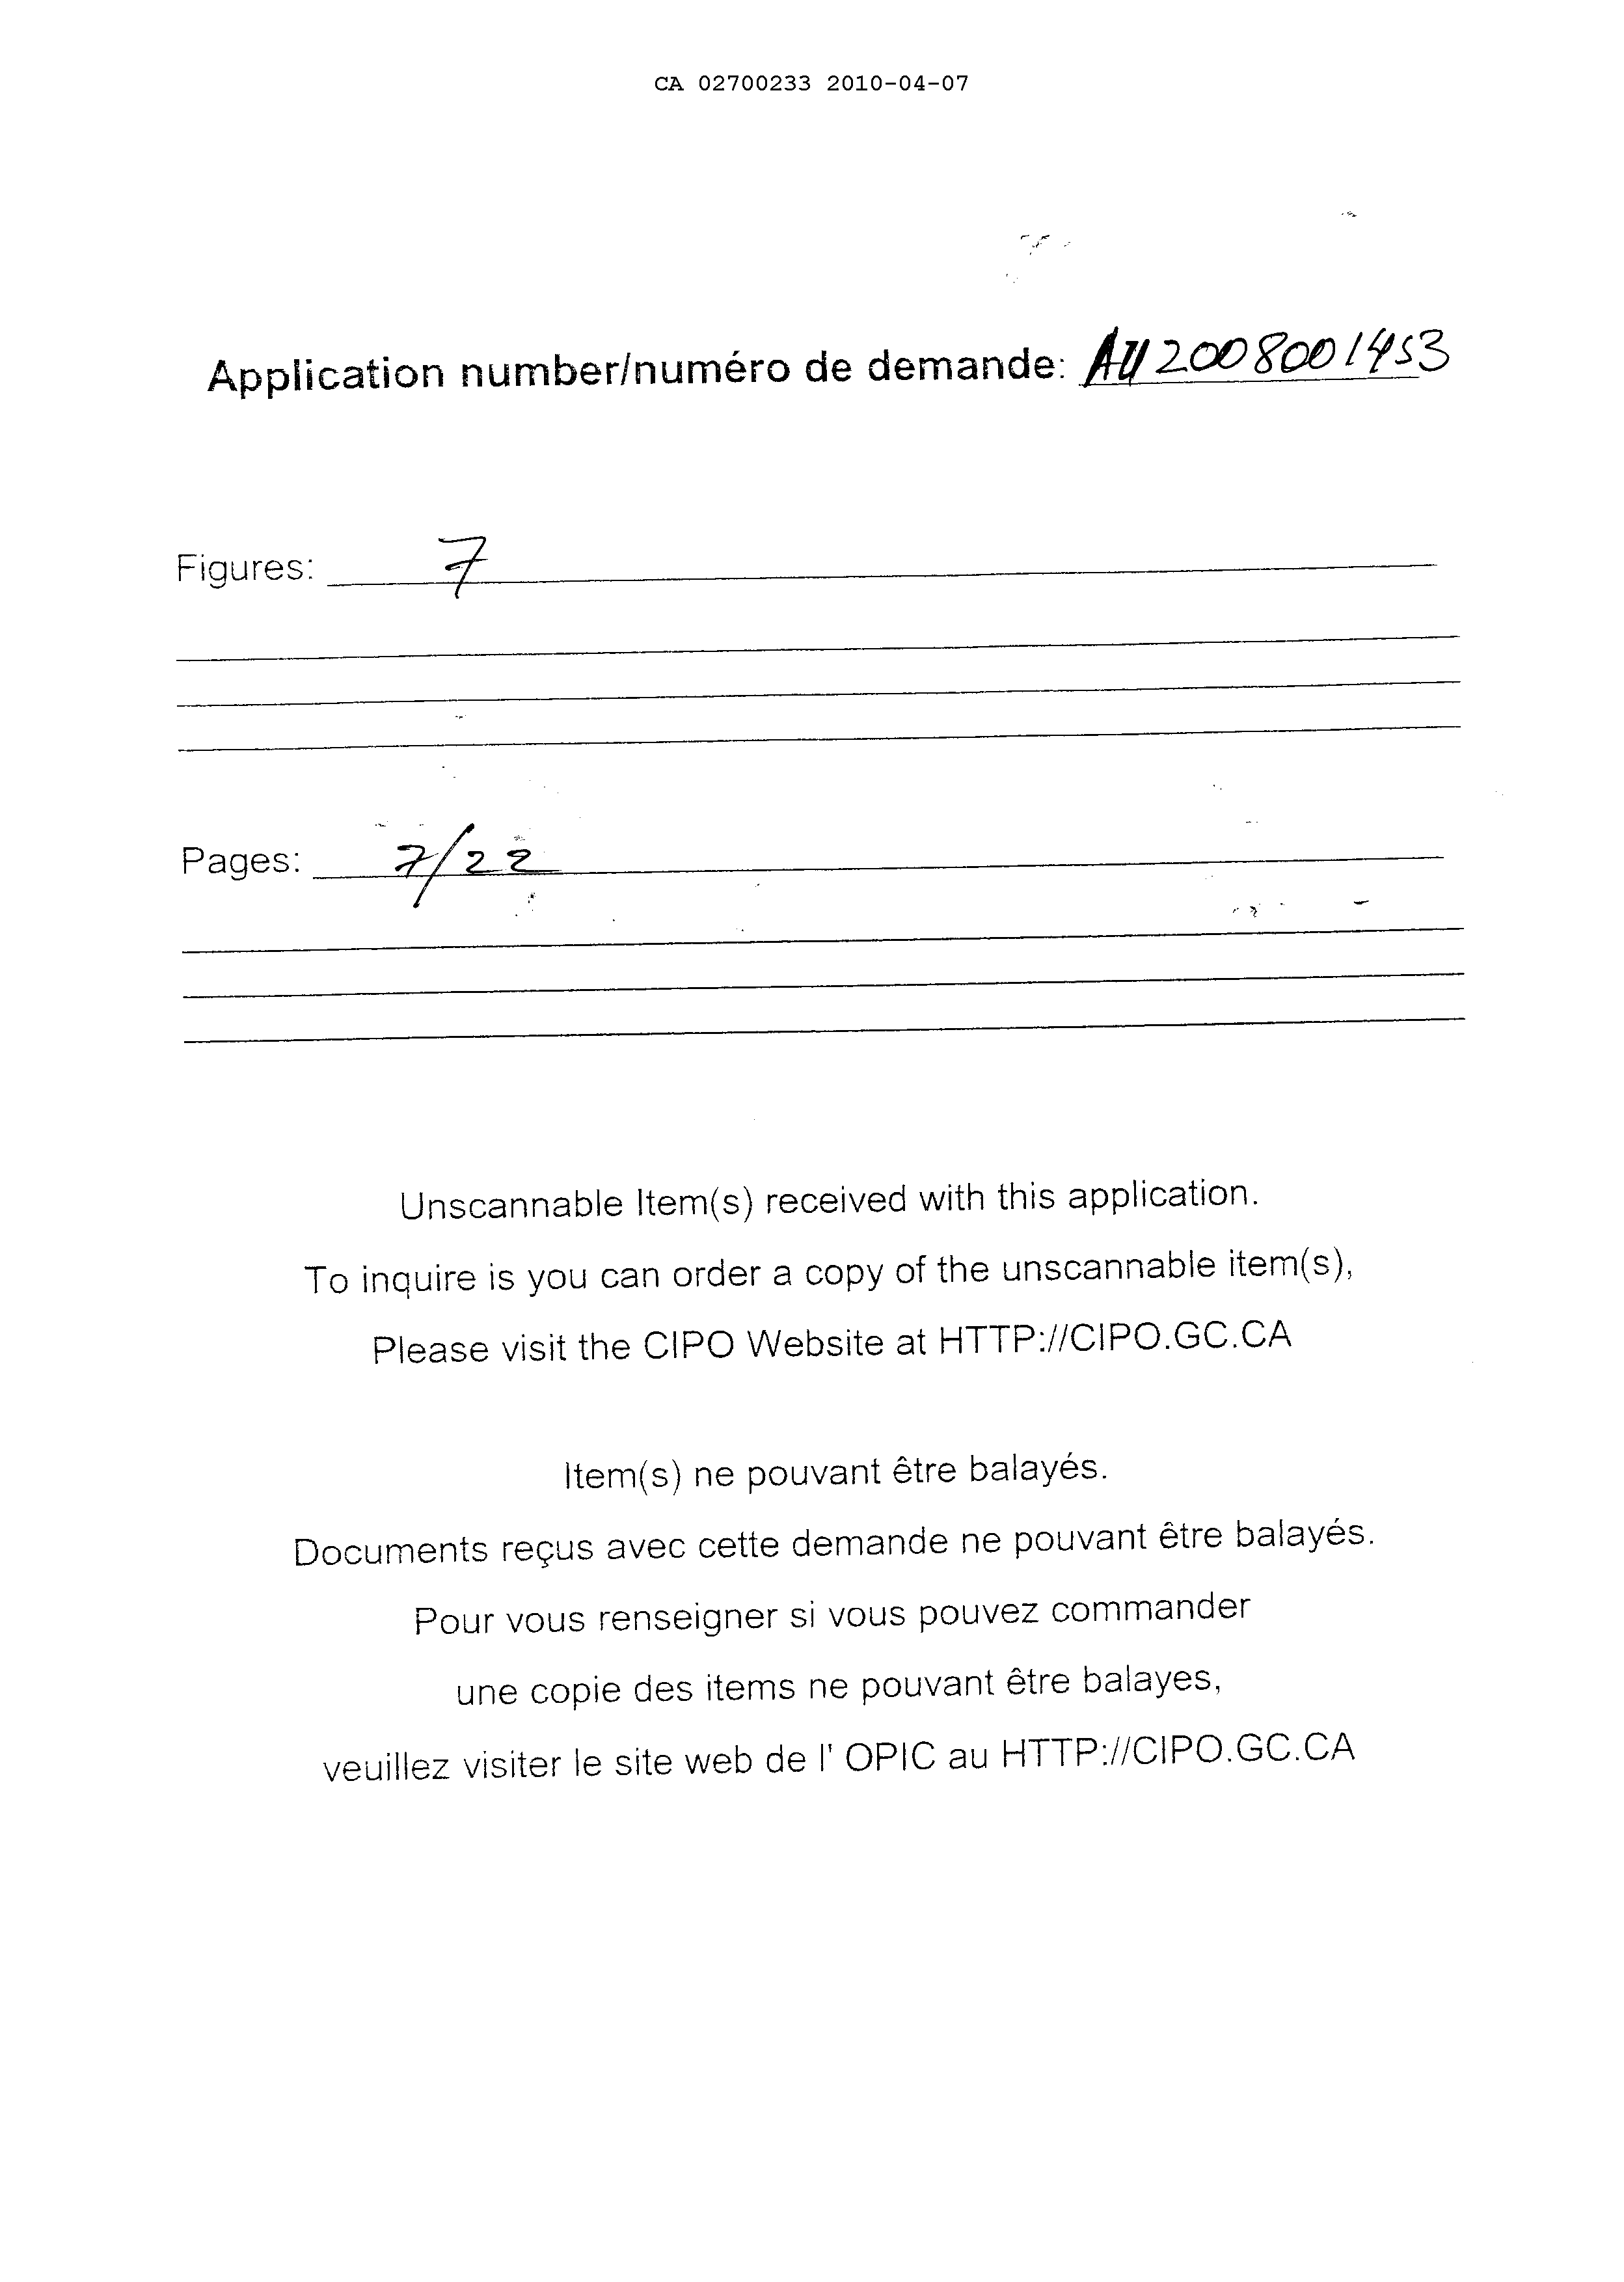 CA 02700233 2010-04-07
Application number/numéro de demande: AU2008001453
Figures: 7
Pages: 7/22
Unscannable Item(s) received with this application.
To inquire is you can order a copy of the unscannable item(s),
Please visit the CIPO Website at HTTP://CIPO.GC.CA
Item(s) ne pouvant être balayés.
Documents reçus avec cette demande ne pouvant être balayés.
Pour vous renseigner si vous pouvez commander
une copie des items ne pouvant être balayes,
veuillez visiter le site web de l' OPIC au HTTP://CIPO.GC.CA